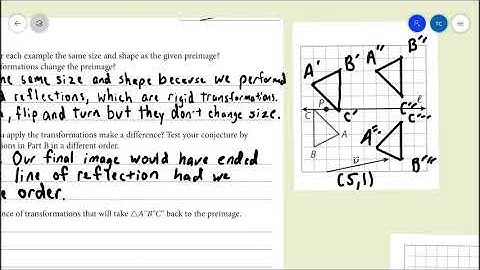 r each example the same size and shape as the given preimage?
nsformations change the preimage?
he same size and shape because we performed
d reflections, which are rigid transformations.
e, flip and turn but they don't change size.
u apply the transformations make a difference? Test your conjecture by
ions in Part B in a different order.
. Our final image would have ended
e line of reflection had we
e order.
ence of transformations that will take △A″B″C″ back to the preimage.
TC
A' B' A" B"
P C' C" ℓ
C C'''
A A'''
B B'''
(5,1)